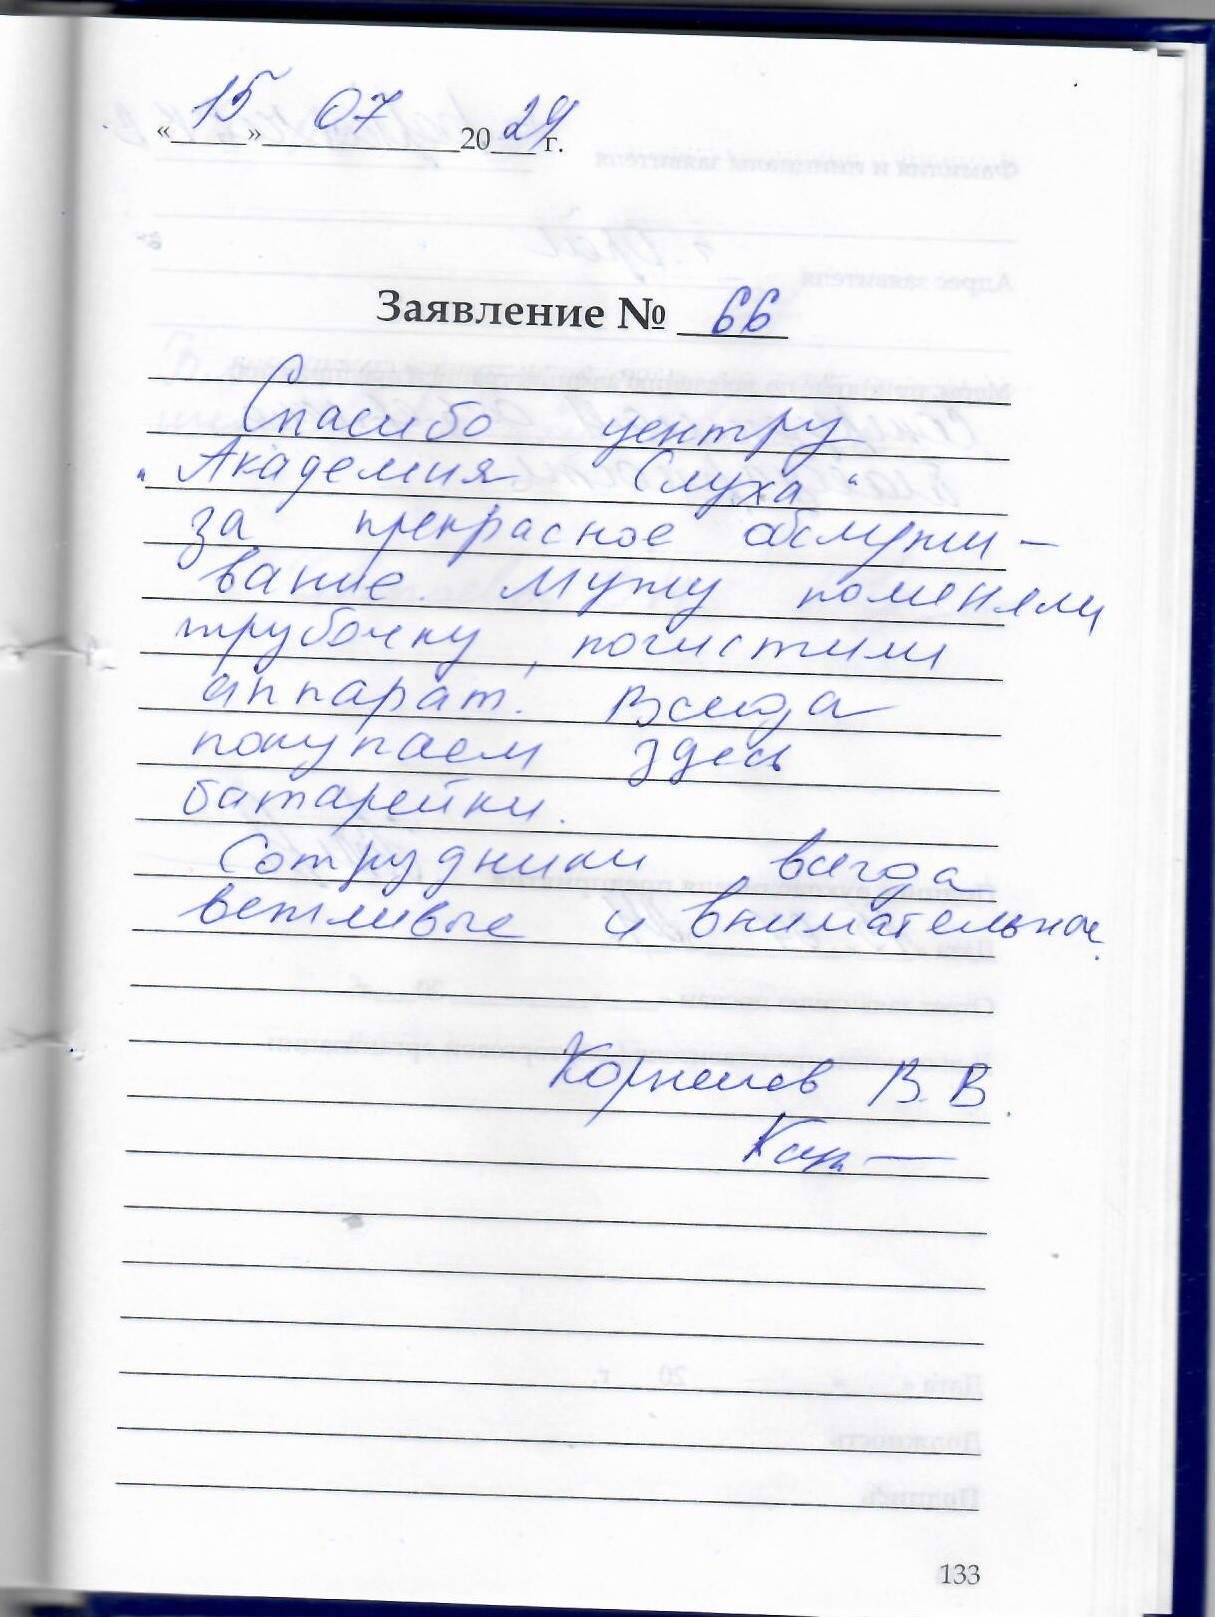 «15» 07 2024 г.
Заявление № 66
Спасибо центру
"Академия Слуха"
за прекрасное обслужи-
вание. Мужу поменяли
трубочку, почистили
аппарат. Всегда
покупаем здесь
батарейки.
Сотрудники всегда
вежливые и внимательные.
В. В.
133